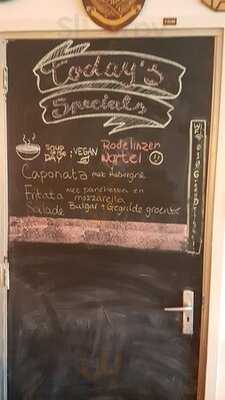 Today's
Specials
SOUP OF THE DAY : VEGAN Rode linzen
Wortel
Caponata met Aubergine
Fritata met parmezaan en
mozzarella
Salade Bulgar + Gegrilde groente